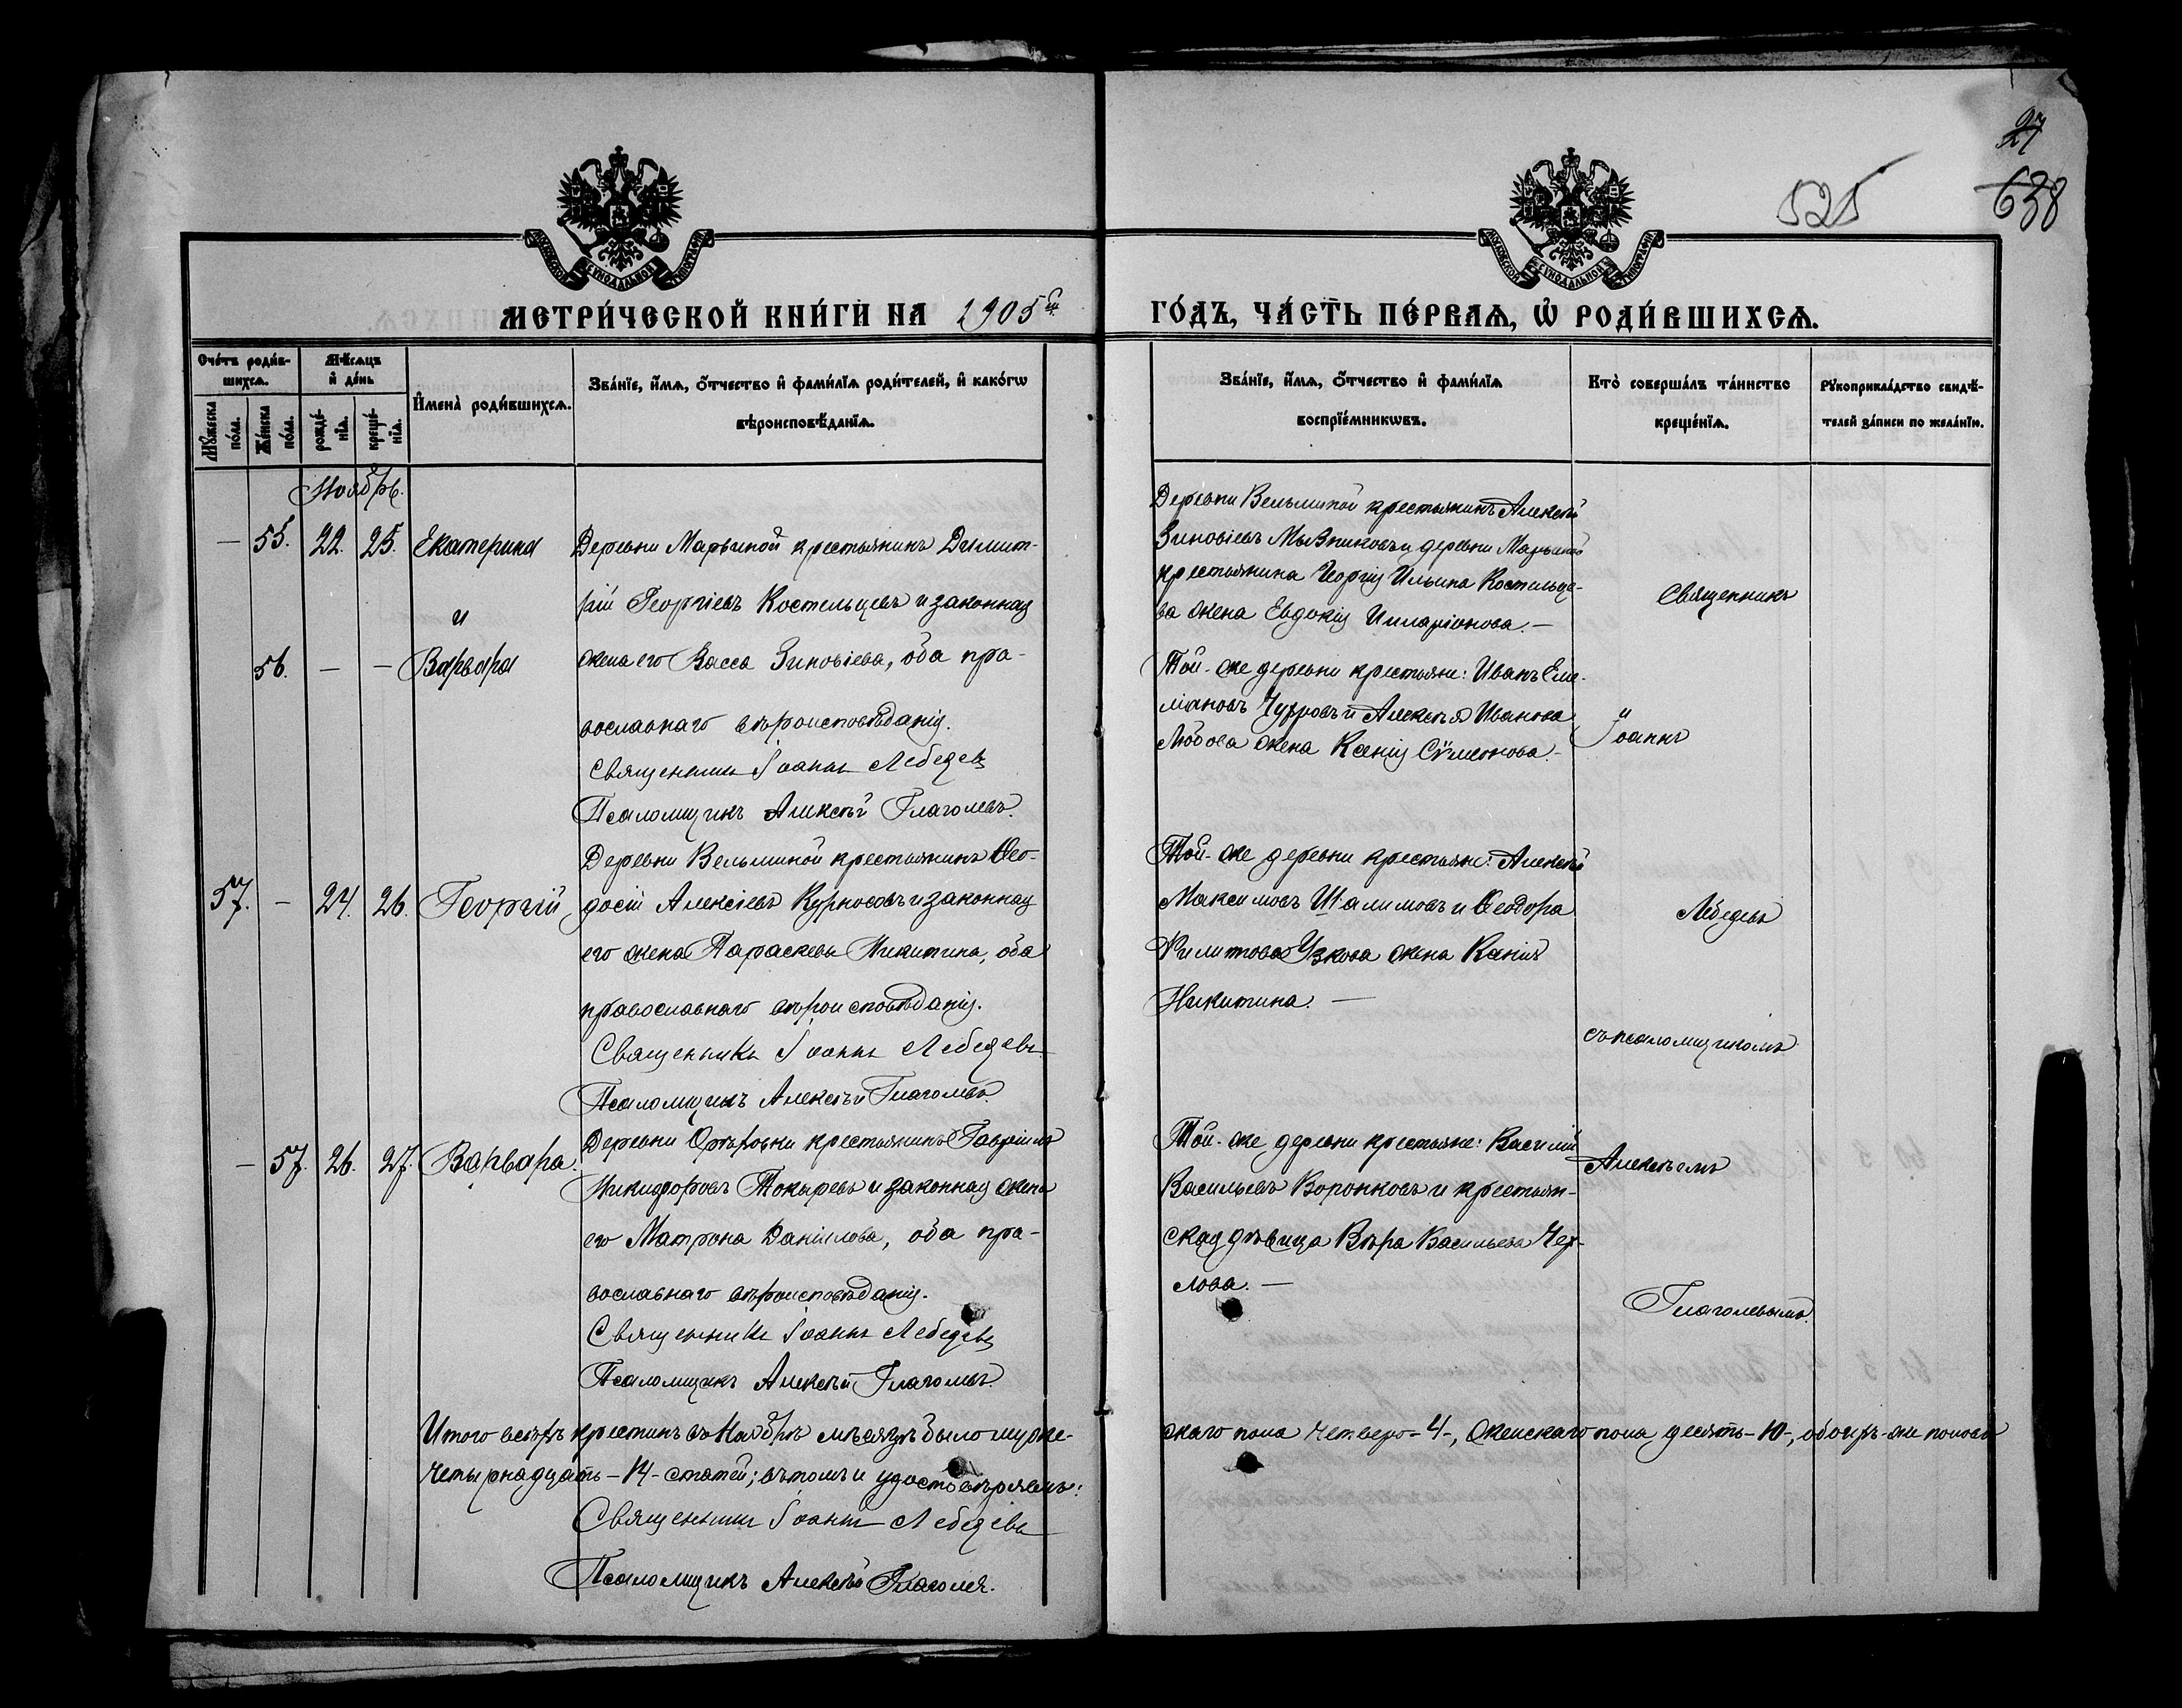 27
638
525
МОСКОВСКОЙ СѴНОДАЛЬНОЙ ТИПОГРАФІИ
МОСКОВСКОЙ СѴНОДАЛЬНОЙ ТИПОГРАФІИ
МЕТРИ́ЧЕСКОЙ КНИ́ГИ НА 1905й
ГО́ДЪ, ЧА́СТЬ ПЕ́РВАѦ, Ѡ҆ РОДИ́ВШИХСѦ.
Сче́тъ роди́в-
шихсѧ.
Мѣ́сѧцъ
и҆ де́нь
Мꙋ́жеска
по́ла.
Же́нска
по́ла.
рожде́-
нїѧ.
креще́-
нїѧ.
И҆мена̀ роди́вшихсѧ.
Зва́нїе, и҆́мѧ, ѻ҆́тчество и҆ фами́лїѧ роди́телей, и҆ како́гѡ
вѣроисповѣ́данїѧ.
Зва́нїе, и҆́мѧ, ѻ҆́тчество и҆ фами́лїѧ
воспрїе́мникѡвъ.
Кто̀ соверша́лъ та́инство
креще́нїѧ.
Рꙋкоприкла́дство свидѣ́-
телей за́писи по жела́нїю.
Ноябрь.
— 55. 22. 25. Екатерина
и
56. — — Варвара
Деревни Марьиной крестьянинъ Димит-
рій Георгіевъ Костельцевъ и законная
жена его Васса Зиновіева, оба пра-
вославнаго вѣроисповѣданія.
Священникъ Іоаннъ Лебедевъ
Псаломщикъ Алексѣй Глаголевъ.
Деревни Вельминой крестьянинъ Алексѣй
Зиновіевъ Мызниковъ и деревни Марьиной
крестьянина Георгія Ильина Костельце-
ва жена Евдокія Илларіонова. —
Той-же деревни крестьяне: Иванъ Еме-
ліановъ и Алексѣя Иванова
жена Ксенія Сѵмеонова. —
57. — 24. 26. Георгій
Деревни Вельминой крестьянинъ Ѳео-
досій Алексіевъ Курносовъ и законная
его жена Параскева Никитина, оба
православнаго вѣроисповѣданія.
Священникъ Іоаннъ Лебедевъ
Псаломщикъ Алексѣй Глаголевъ.
Той-же деревни крестьяне: Алексѣй
Максимовъ Шалимовъ и Ѳеодора
Филиппова Узкова жена Ксенія
Никитина. —
— 57. 26. 27. Варвара.
Деревни крестьянинъ Гавріилъ
Никифоровъ Токаревъ и законная жена
его Матрона Даніилова, оба пра-
вославнаго вѣроисповѣданія.
Священникъ Іоаннъ Лебедевъ
Псаломщикъ Алексѣй Глаголевъ.
Той-же деревни крестьяне: Василій
Васильевъ Воронковъ и крестьян-
ская дѣвица Вѣра Васильева Чех-
лова. —
Священникъ
Іоаннъ
Лебедевъ
съ псаломщикомъ
Алексѣемъ
Глаголевымъ.
Итого всѣхъ крестинъ въ Ноябрѣ мѣсяцѣ было муже-
скаго пола четверо -4-, женскаго пола десять -10-, обоихъ-же половъ
четырнадцать -14- статей; въ томъ и удостовѣряемъ:
Священникъ Іоаннъ Лебедевъ
Псаломщикъ Алексѣй Глаголев.